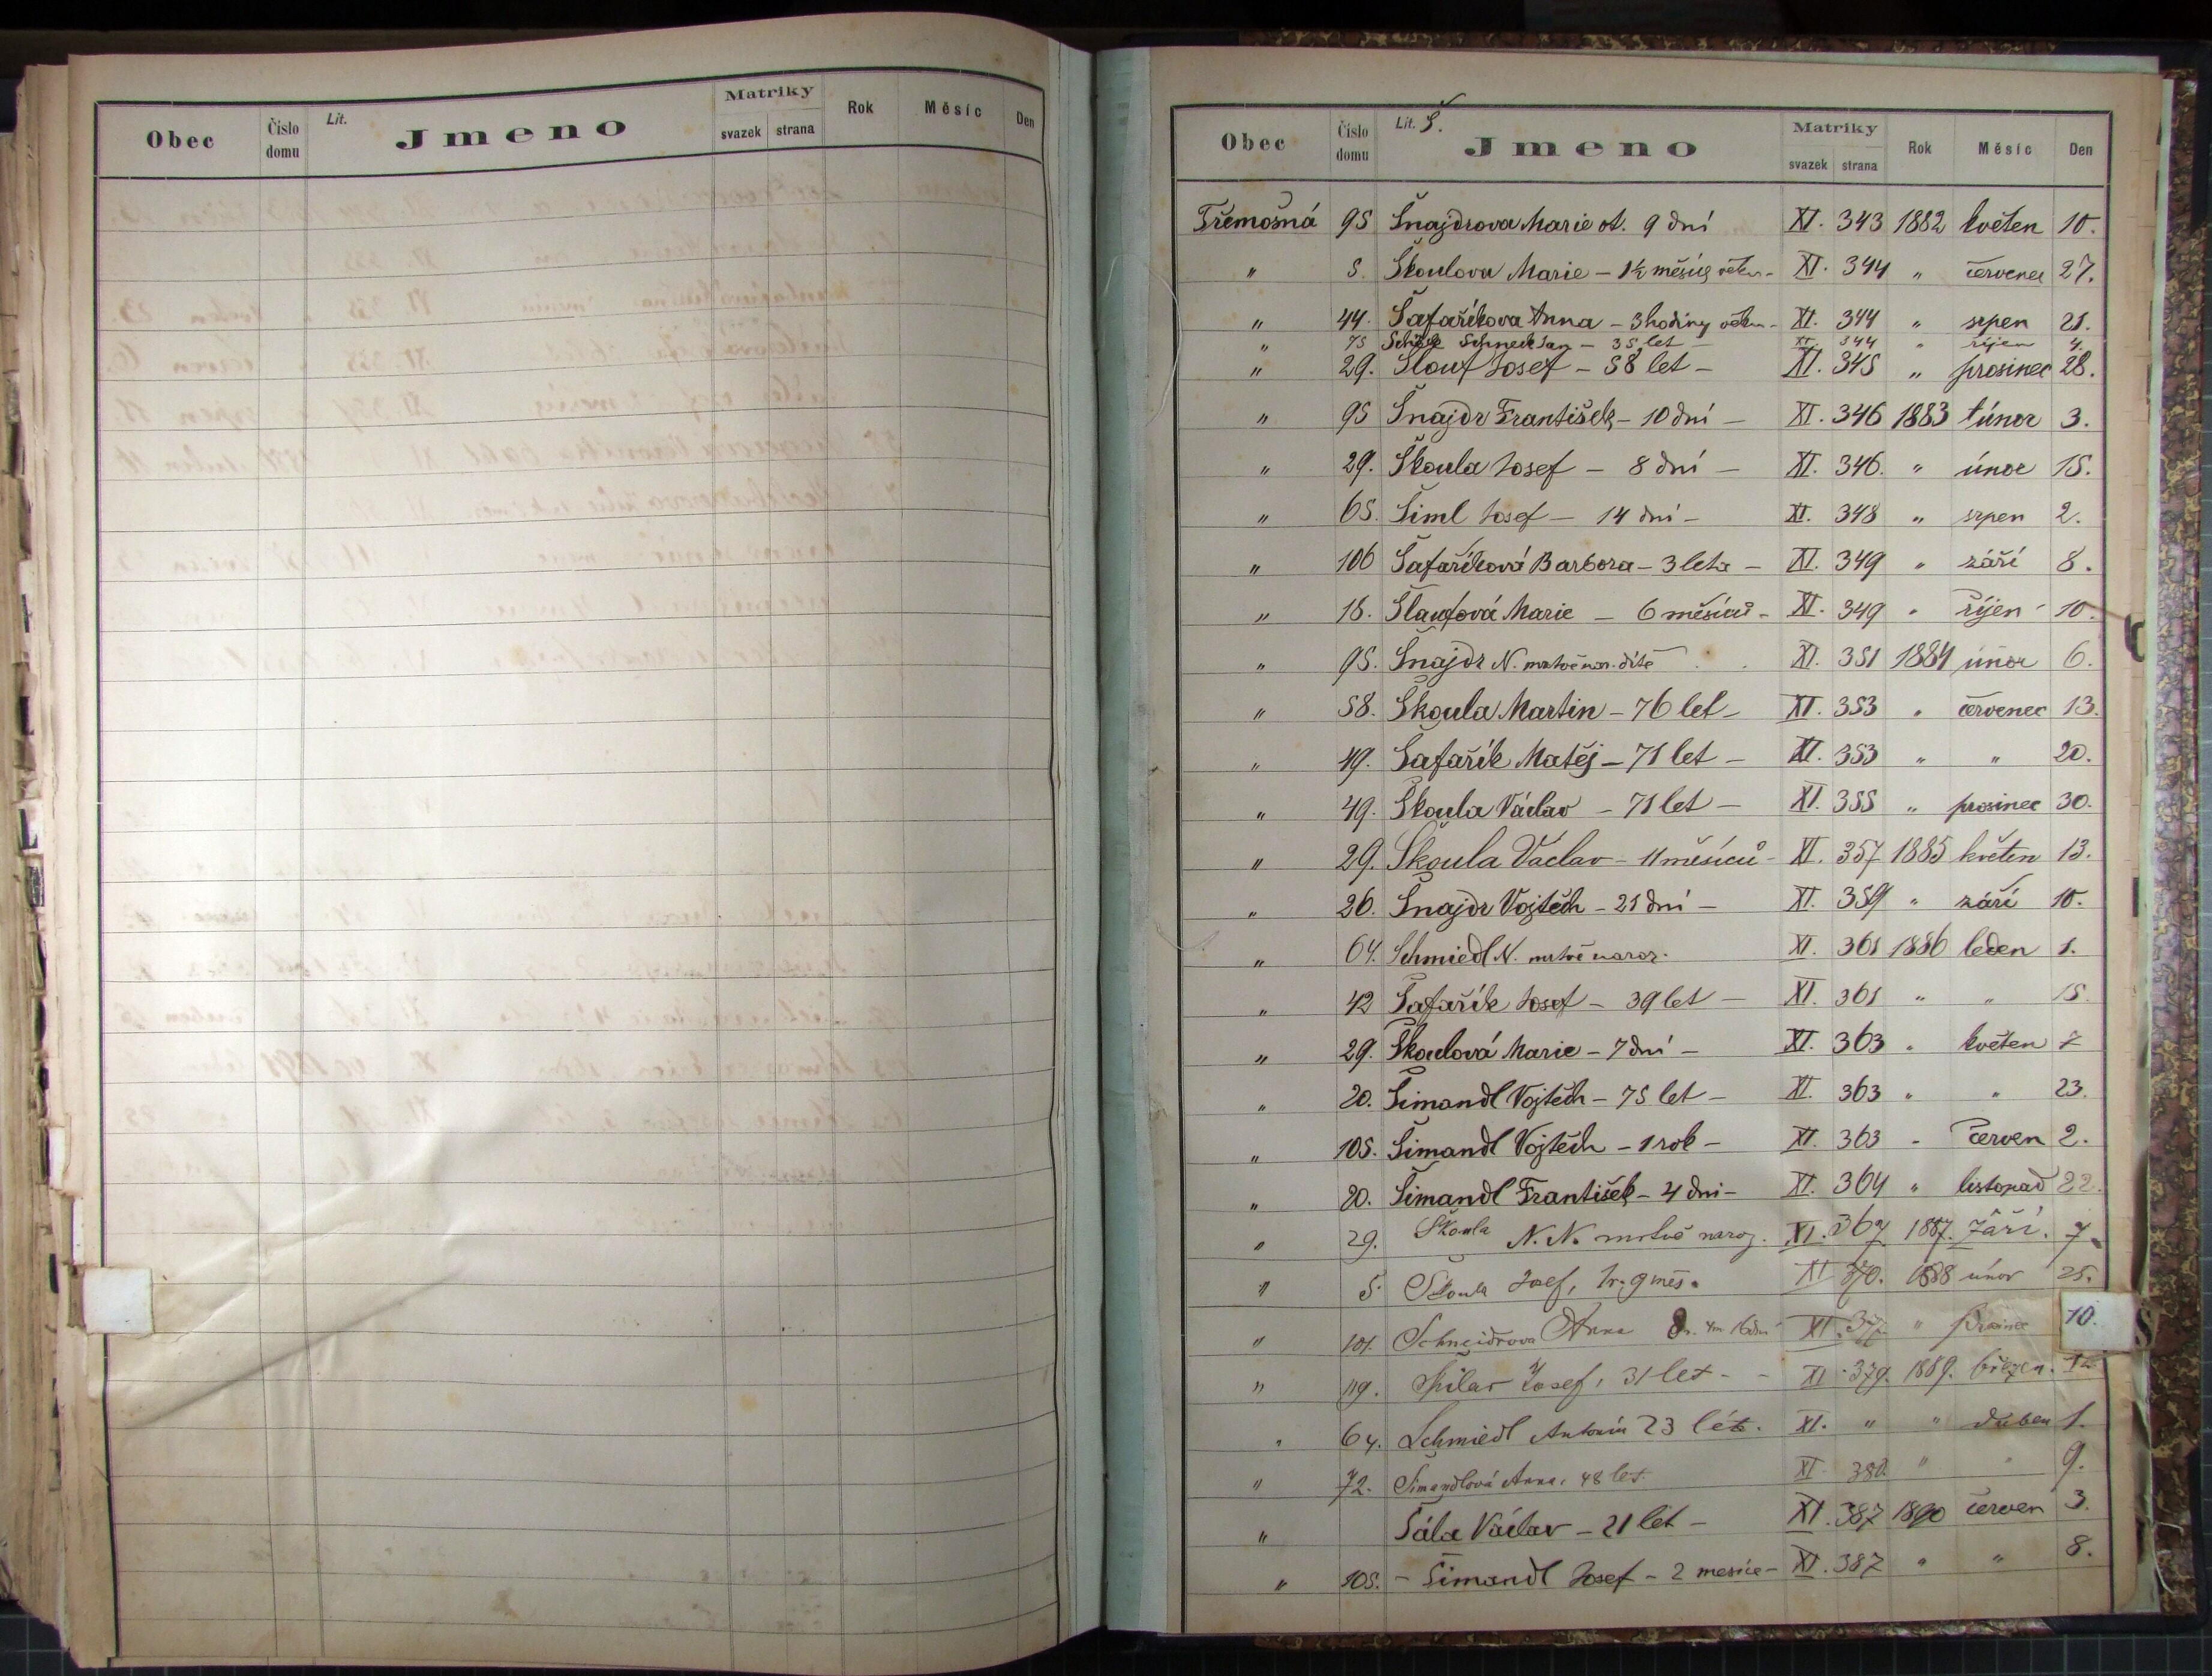 Obec Číslo domu Lit. Jmeno Matriky svazek strana Rok Měsíc Den
Obec Číslo domu Lit. Š. Jmeno Matriky svazek strana Rok Měsíc Den
Třemošná 95 Šnajdrova Marie st. 9 dní XI. 343 1882 květen 10.
" 5. Škoulova Marie – 1½ měsíce věku – XI. 344 " červenec 27.
" 44. Šafaříkova Anna – 3 hodiny věku – XI. 344 " srpen 21.
" 75 Schneck Jan – 35 let – XI. 344 " říjen 4.
" 29. Šlouf Josef – 58 let – XI. 345 " prosinec 28.
" 95 Šnajdr František – 10 dní – XI. 346 1883 únor 3.
" 29. Škoula Josef – 8 dní – XI. 346. " únor 15.
" 65. Šiml Josef – 14 dní – XI. 348 " srpen 2.
" 106 Šafaříková Barbora – 3 leta – XI. 349 " září 8.
" 18. Šlaufová Marie – 6 měsíců – XI. 349 " říjen 10.
" 95. Šnajdr N. mrtvě nar. dítě XI. 351 1884 únor 6.
" 58. Škoula Martin – 76 let – XI. 353 " červenec 13.
" 49. Šafařík Matěj – 71 let – XI. 353 " " 20.
" 49. Škoula Václav – 71 let – XI. 355 " prosinec 30.
" 29. Škoula Václav – 11 měsíců – XI. 357 1885 květen 13.
" 26. Šnajdr Vojtěch – 21 dní – XI. 359 " září 10.
" 64. Schmiedl N. mrtvě naroz. XI. 361 1886 leden 1.
" 42 Šafařík Josef – 39 let – XI. 361 " " 15.
" 29. Škoulová Marie – 7 dní – XI. 363 " květen 7
" 20. Šimandl Vojtěch – 75 let – XI. 363 " " 23.
" 105. Šimandl Vojtěch – 1 rok – XI. 363 " červen 2.
" 20. Šimandl František – 4 dni – XI. 364 " listopad 22.
" 29. Škoula N. N. mrtvě naroz. XI. 367 1887. září. 7.
" 5. Škoula Josef, 1 r. 9 měs. XI 370. 1888 únor 25.
" 101. Schneidrova Anna XI. 377 " prosinec 10.
" 119. Špilar Josef, 31 let – – XI. 379. 1889. březen. 12
" 64. Schmiedl Antonín 23 let. XI. " " duben 1.
" 72. Šimandlová Anna. 48 let. XI. 380. " " 9.
" Šála Václav – 21 let – XI. 387 1890 červen 3.
" 105. – Šimandl Josef – 2 mesíce – XI. 387 " " 8.